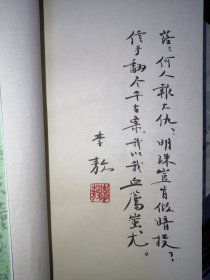 落々何人報大仇？明珠豈肯做暗投？
信手翻尽千古案，我以我血薦蚩尤。
李敖